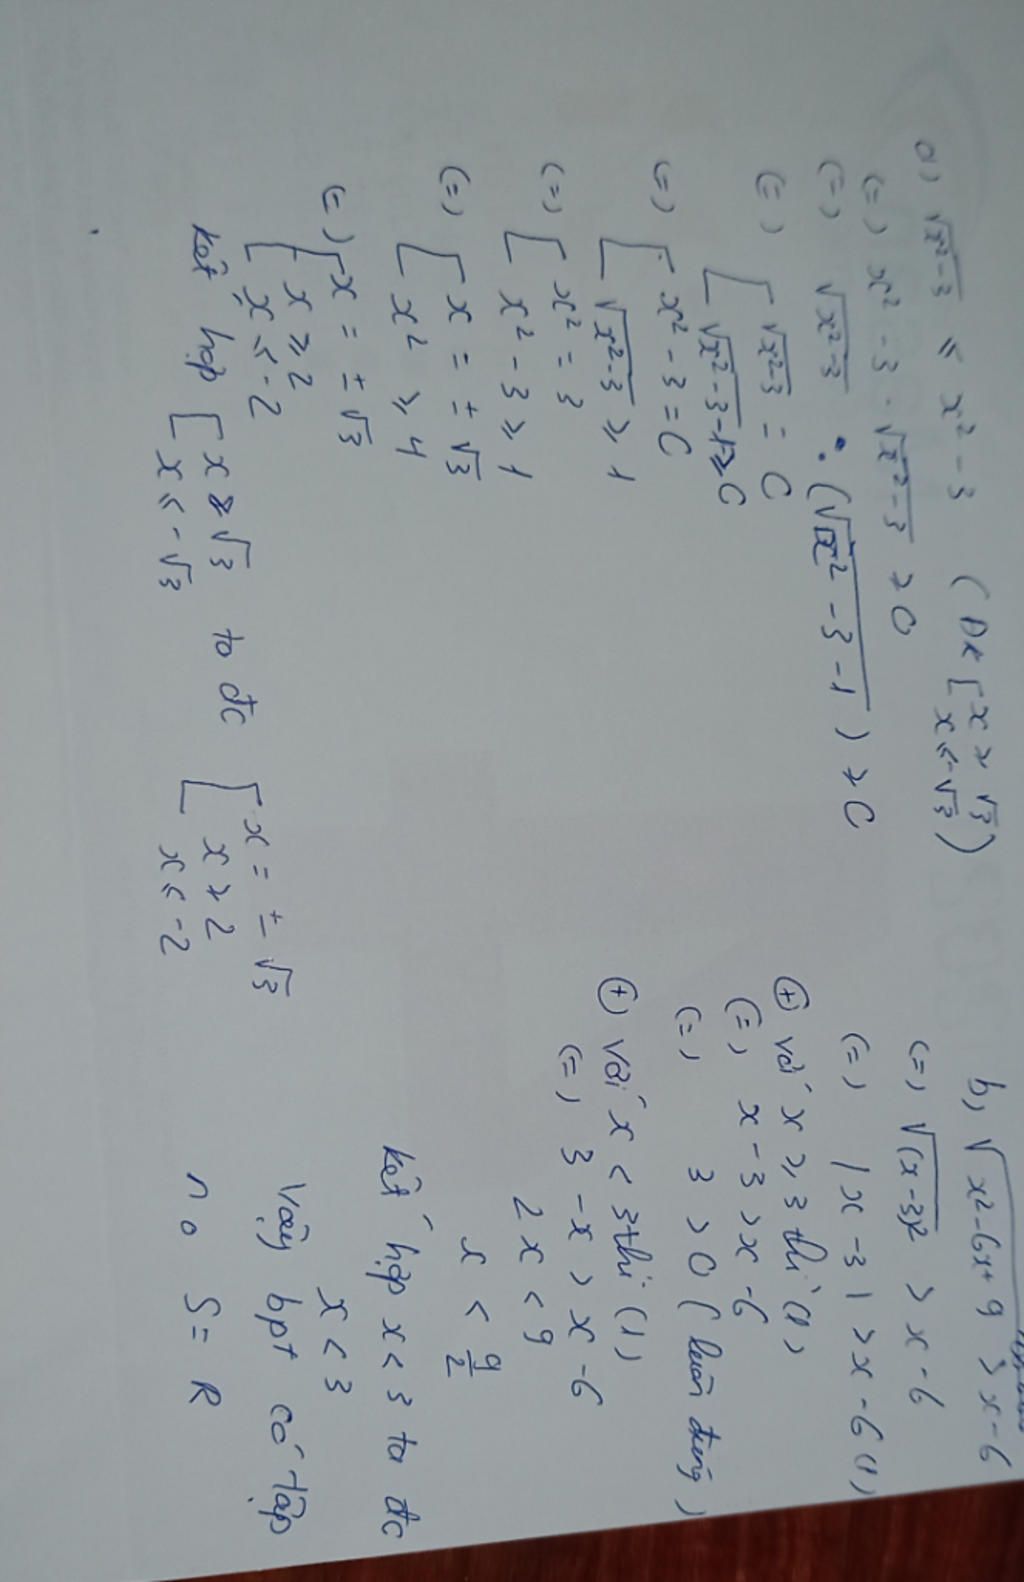 a) √x²-3 ≤ x² - 3 ( ĐK [ x ≥ √3
x ≤ -√3 )
(=) x² - 3 - √x²-3 ≥ 0
(=) √x²-3 . (√x² - 3 - 1) ≥ 0
(=) [ √x²-3 = 0
√x²-3 -1 ≥ 0
(=) [ x² - 3 = 0
√x²-3 ≥ 1
(=) [ x² = 3
x² - 3 ≥ 1
(=) [ x = ± √3
x² ≥ 4
(=) [ x = ± √3
x ≥ 2
x ≤ -2
Kết hợp [ x ≥ √3
x ≤ -√3 ta đc [ x = ± √3
x ≥ 2
x ≤ -2
b, √x²-6x+9 > x-6
(=) √(x-3)² > x - 6
(=) |x - 3| > x - 6 (1)
(+) với x ≥ 3 thì (1)
(=) x - 3 > x - 6
(=) 3 > 0 ( luôn đúng )
(+) với x < 3 thì (1)
(=) 3 - x > x - 6
2x < 9
x < 9/2
kết hợp x < 3 ta đc
x < 3
Vậy bpt có tập
no S = R